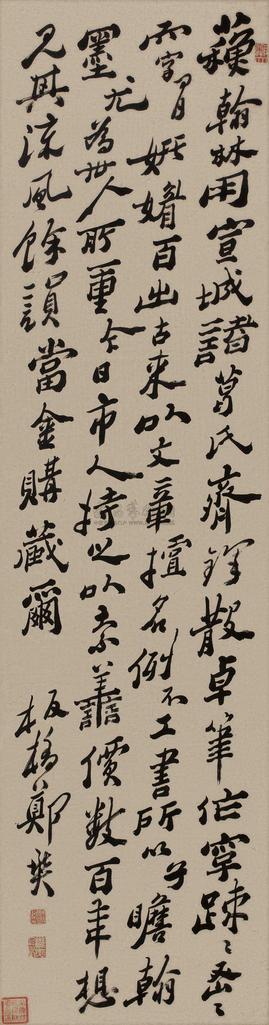 蘓翰林用宣城諸葛氏齊鋒散卓筆作字踈〻密〻
而字間妍媚百出古来以文章擅名例不工書所以子瞻翰
墨尤為世人所重今日市人持之以索善價數百年想
見其流風餘韻當金購藏爾
板橋鄭燮